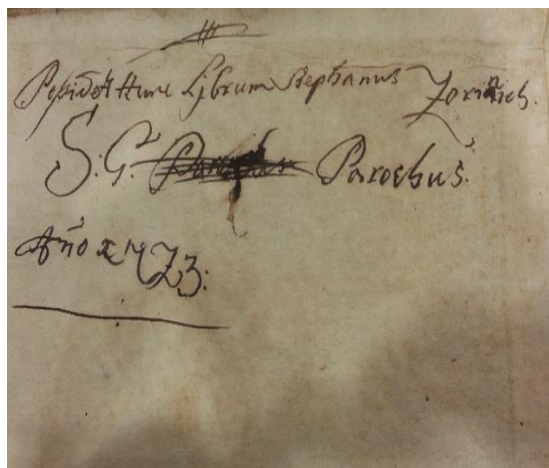 Possidet Hunc Librum Stephanus Zorinich.
S: G: Parochus.
Año 1723: